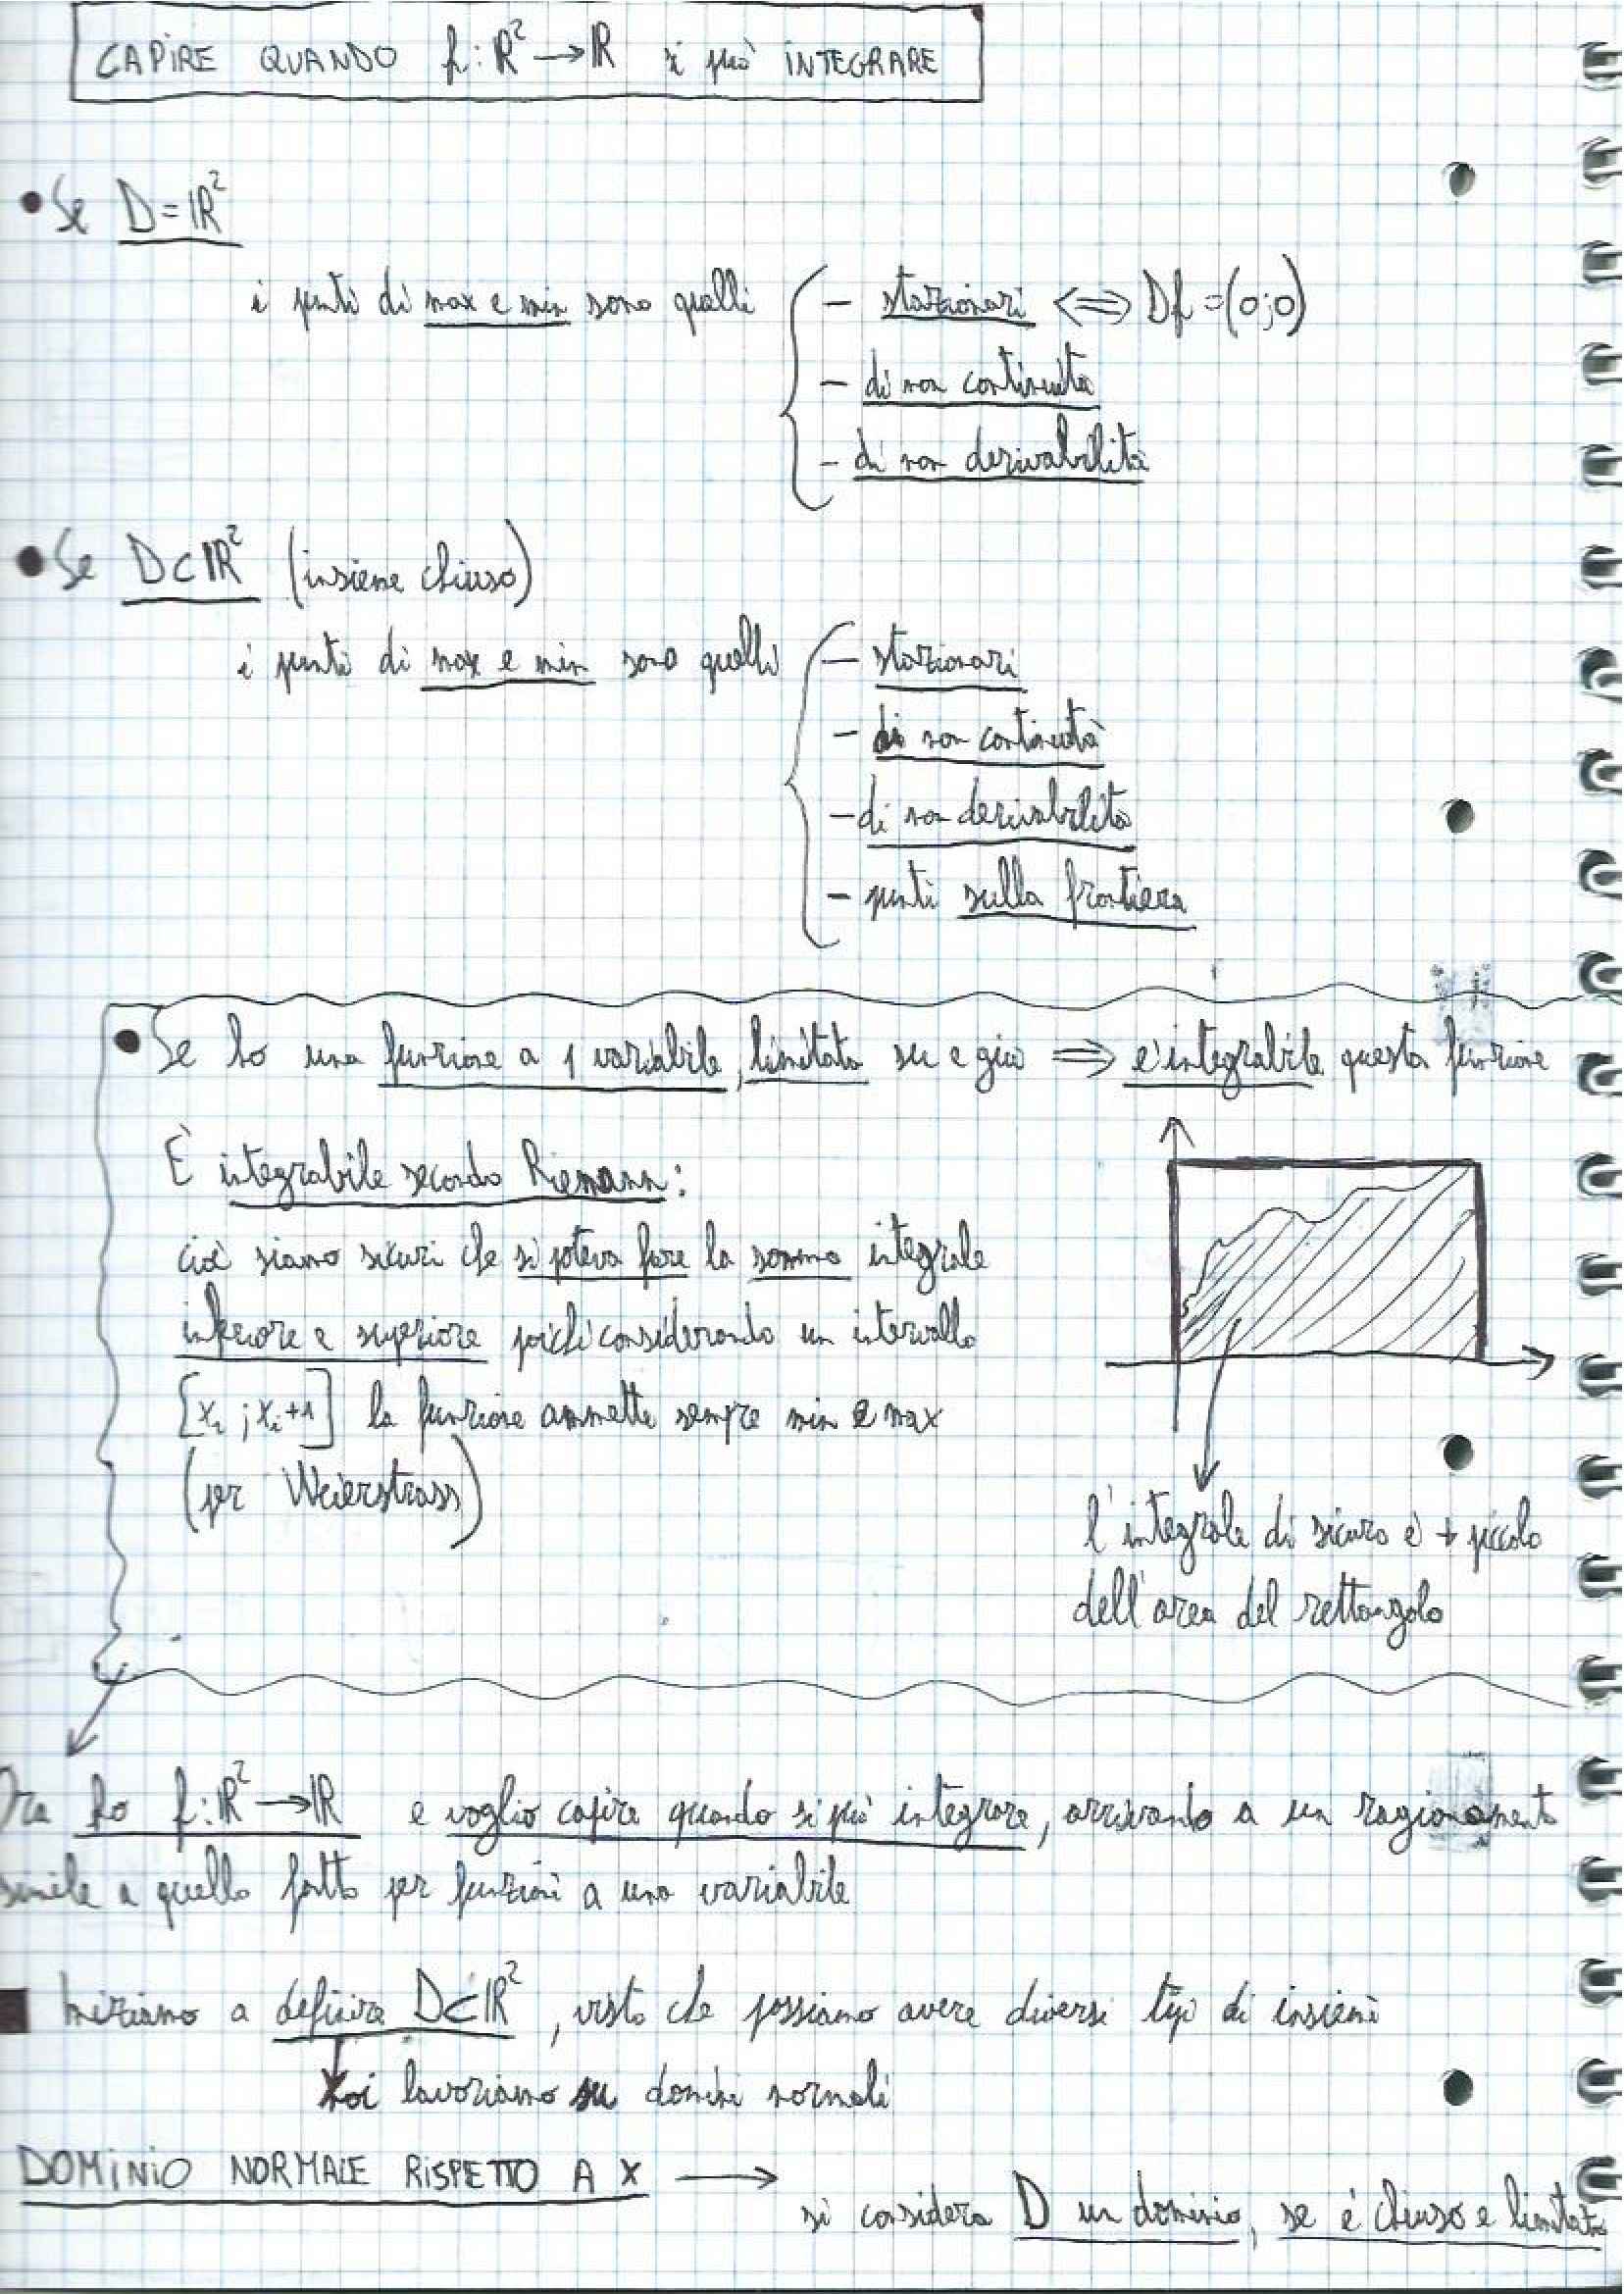 CAPIRE QUANDO f: ℝ² → ℝ si può INTEGRARE
• Se D = ℝ²
i punti di max e min sono quelli
- stazionari ⟺ Df = (0;0)
- di non continuità
- di non derivabilità
• Se D ⊂ ℝ² (insieme chiuso)
i punti di max e min sono quelli
- stazionari
- di non continuità
- di non derivabilità
- punti sulla frontiera
• Se ho una funzione a 1 variabile, limitata su e giù ⟹ è integrabile questa funzione
È integrabile secondo Riemann:
cioè siamo sicuri che si poteva fare la somma integrale
inferiore e superiore poiché considerando un intervallo
[xᵢ ; xᵢ+1] la funzione ammette sempre min e max
(per Weierstrass)
l'integrale di sicuro è + piccolo
dell'area del rettangolo
Ora ho f: ℝ² → ℝ e voglio capire quando si può integrare, arrivando a un ragionamento
simile a quello fatto per funzioni a una variabile
■ Iniziamo a definire D ⊂ ℝ², visto che possiamo avere diversi tipi di insiemi
noi lavoriamo su domini normali
DOMINIO NORMALE RISPETTO A X →
si considera D un dominio, se è chiuso e limitato